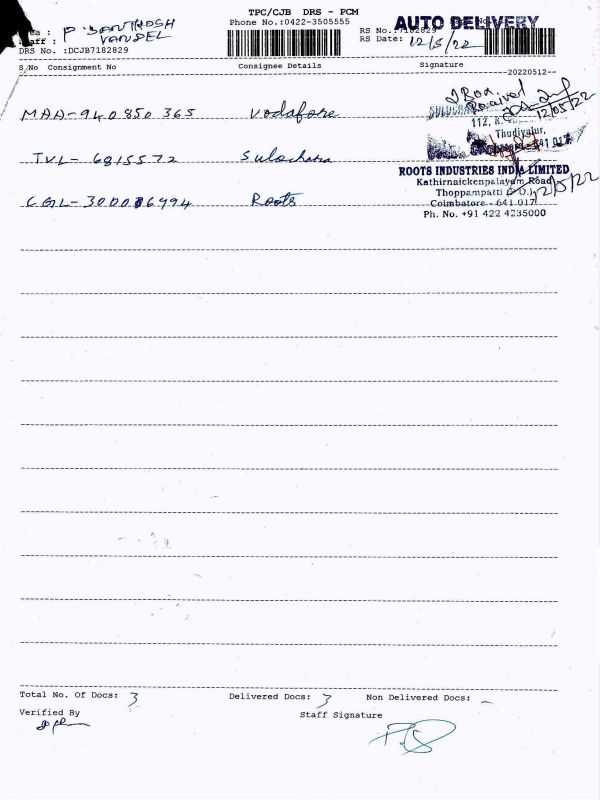 TPC/CJB DRS - PCM
Phone No.:0422-3505555
AUTO DELIVERY
P SANTHOSH
Staff :
DRS No. :DCJB7182829
RS No.:7182829
RS Date: 12/5/22
S.No Consignment No Consignee Details Signature
20220512
MAA-940850365 Vodafone
1 Box
Received
12/05/22
112,
Thudiyalur,
641 017
TVL-6815572 Sulochana
ROOTS INDUSTRIES INDIA LIMITED
Kathirnaickenpalayam Road
Thoppampatti (P.O.)
Coimbatore - 641 017
Ph. No. +91 422 4235000
12/5/22
Roots
Total No. Of Docs: 3 Delivered Docs: 3 Non Delivered Docs: -
Verified By
Staff Signature